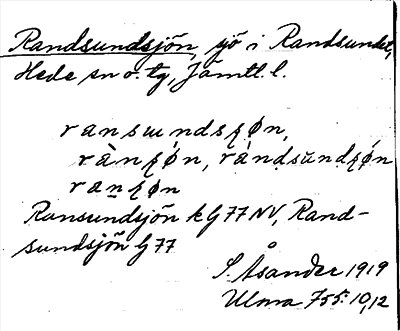 Randsundsjön, sjö i Randsundet,
Hede sn o. tg, Jämtl. l.
ransɯndsʃøn,
rànʃǿn, rándsŭndʃǿn
ranʃøn
Ransundsjön k G77 NV, Rand-
sundsjön G77
S. Åsander 1919
Ulma 755:10,12